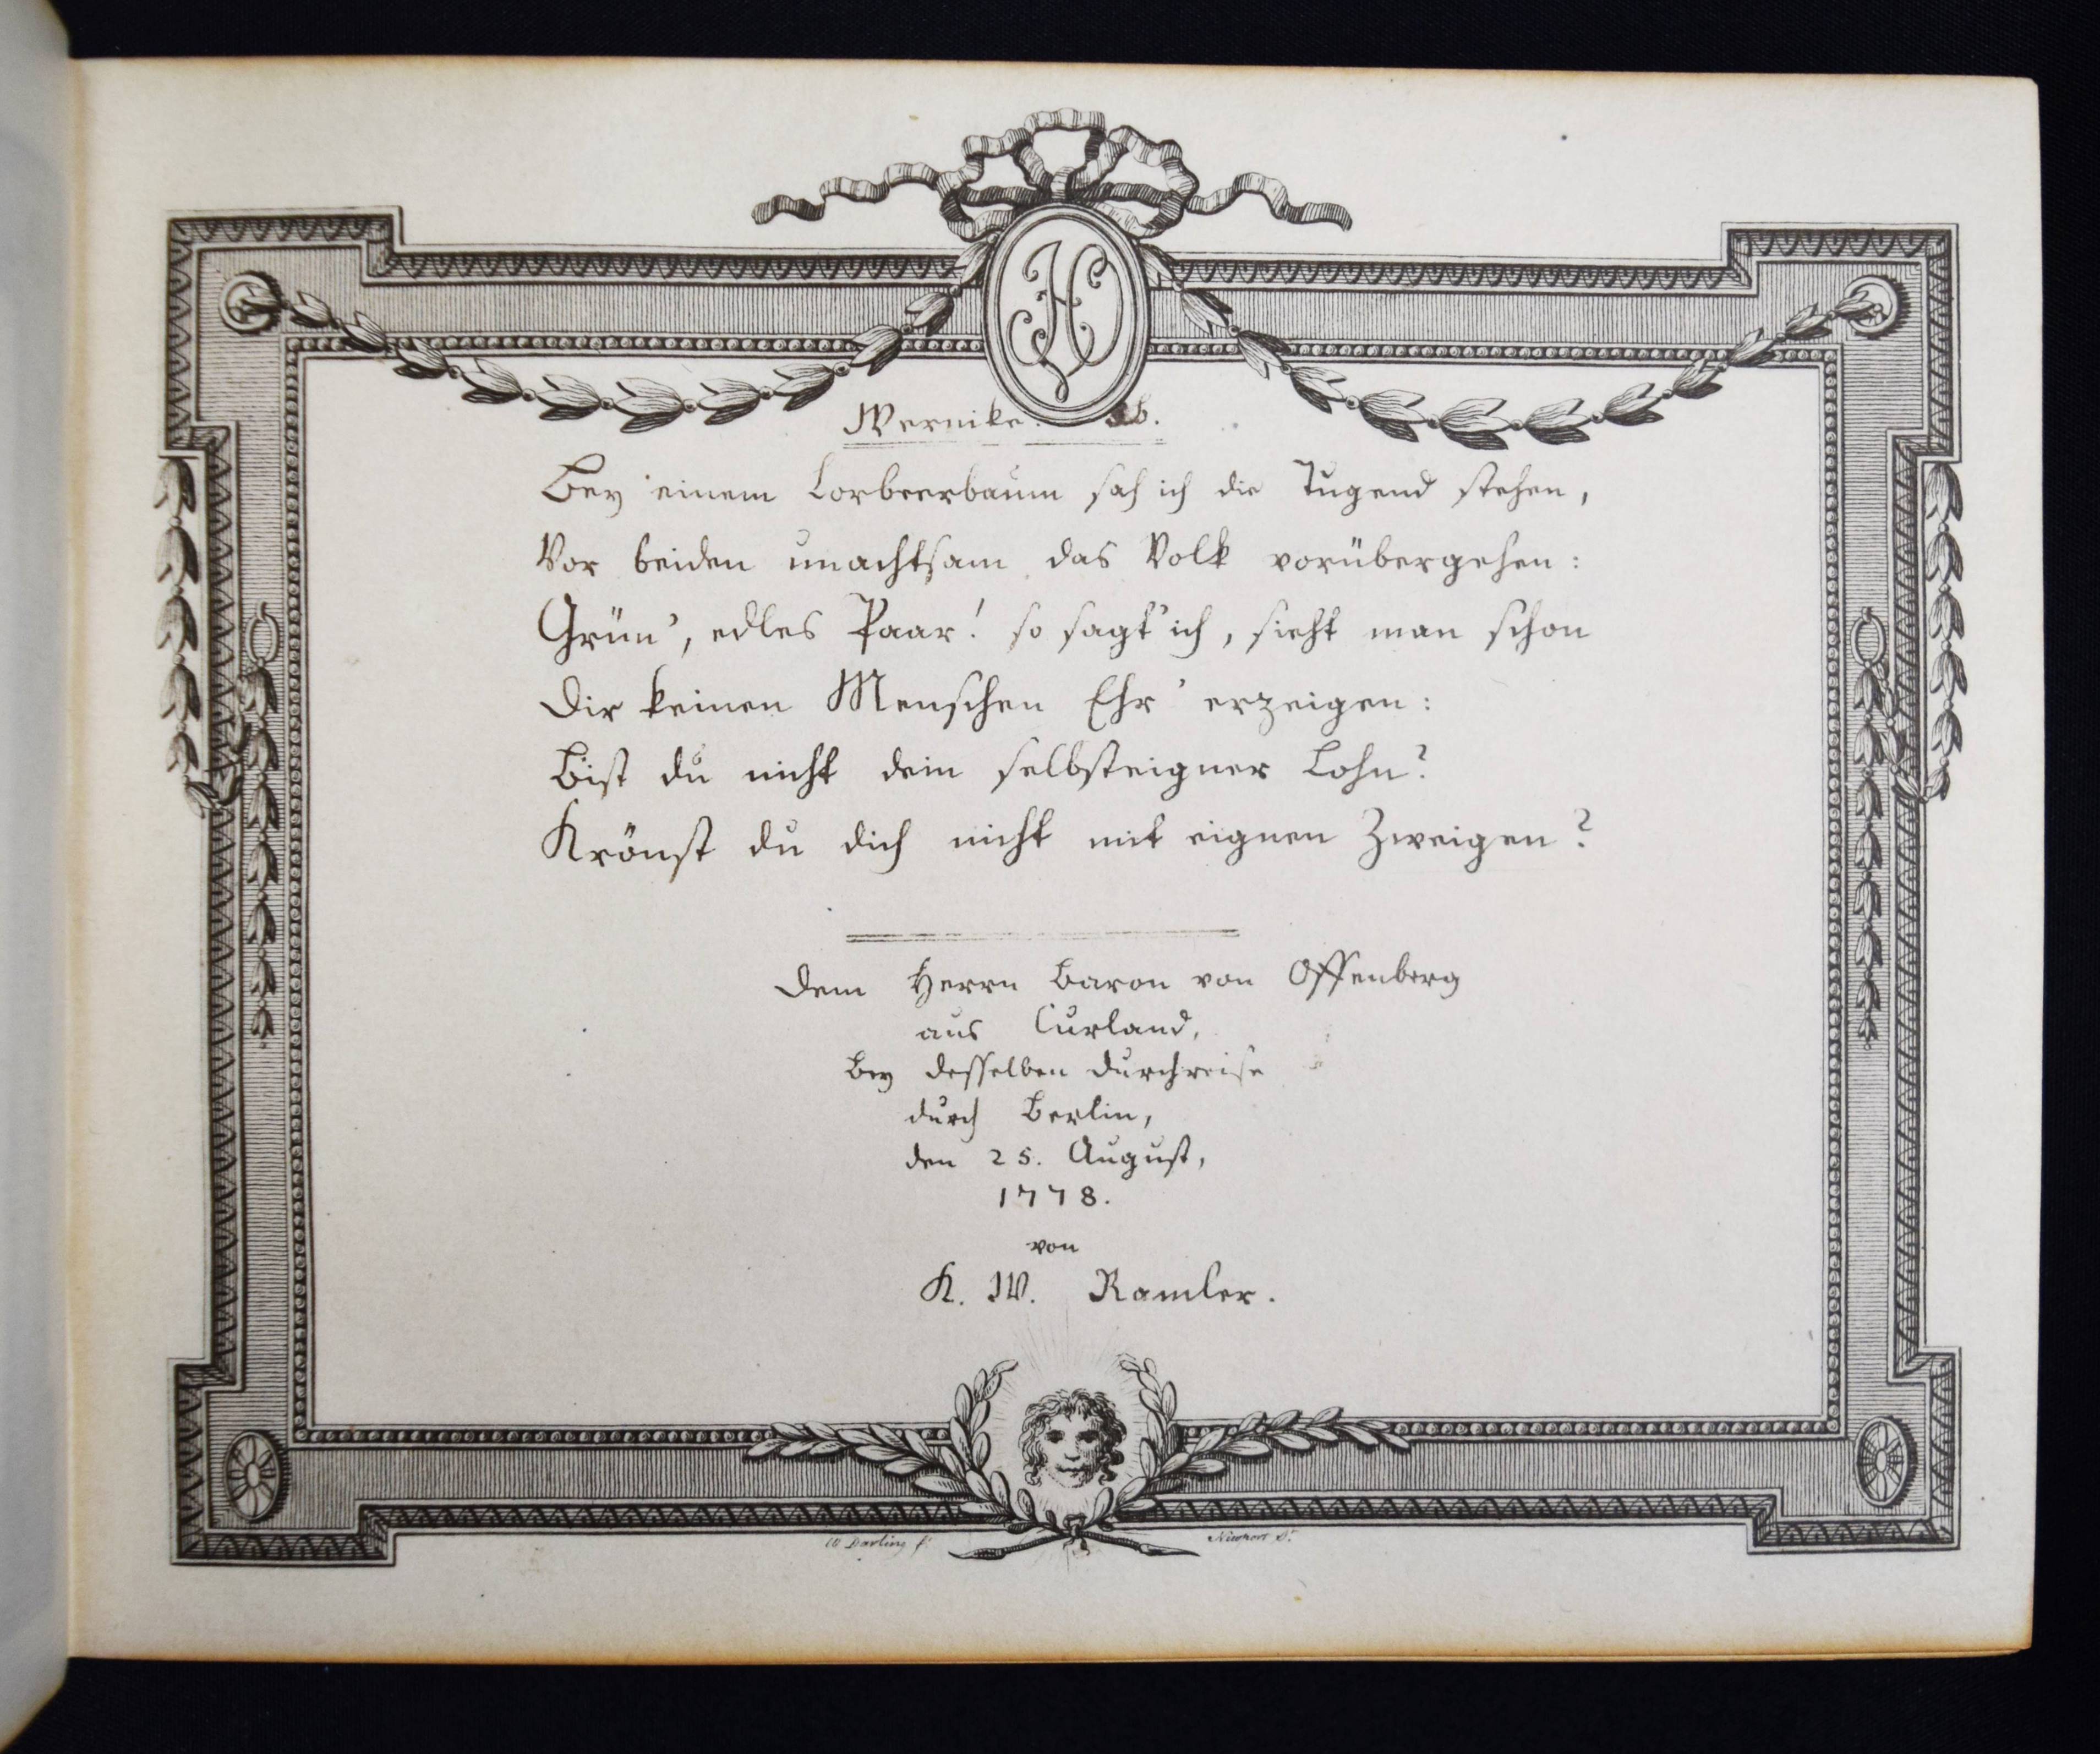 H
Wernike.
Bey einem Lorbeerbaum sah ich die Tugend stehen,
Vor beiden unachtsam das Volk vorübergehen:
Grün', edles Paar! so sagt' ich, sieht man schon
Dir keinen Menschen Ehr' erzeigen:
Bist du nicht dein selbsteigner Lohn?
Krönst du dich nicht mit eignen Zweigen?
Dem Herrn Baron von Offenberg
aus Curland,
Bey desselben Durchreise
durch Berlin,
den 25. August,
1778.
von
K. W. Ramler.
W Darling f. Newport St.